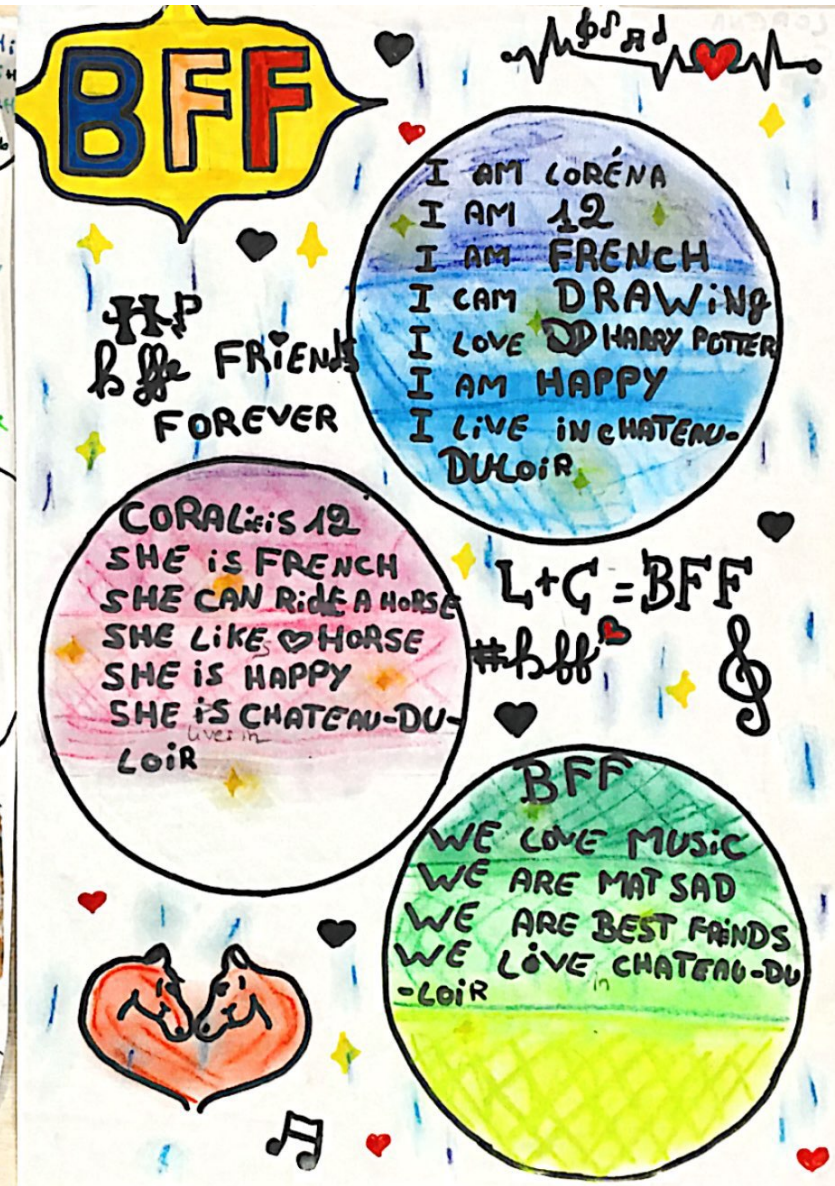 BFF
I AM LORÉNA
I AM 12
I AM FRENCH
I CAM DRAWiNG
I LOVE HARRY POTTER
I AM HAPPY
I LiVE iN CHATEAU-
DULOiR
HP
bffe FRiENDS
FOREVER
CORALiEiS 12
SHE iS FRENCH
SHE CAN RiDE A HORSE
SHE LiKEs ♡ HORSE
SHE iS HAPPY
SHE iS CHATEAU-DU-
lives in
LOiR
L+C=BFF
#bff
BFF
WE LOVE MUSiC
WE ARE MAT SAD
WE ARE BEST FRiNDS
WE LiVE in CHATEAU-DU
-LOiR